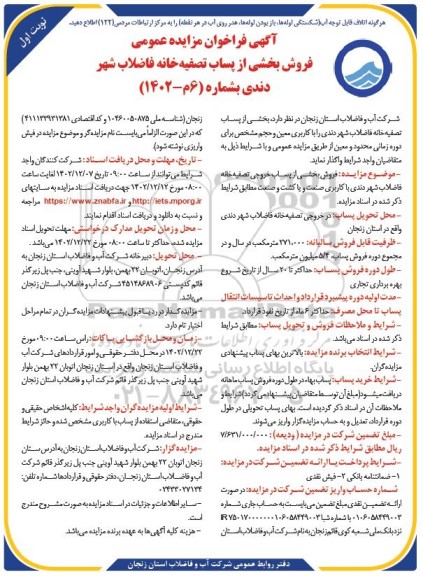 هرگونه اتلاف قابل توجه آب(شکستگی لوله‌ها، باز بودن لوله‌ها، هدر روی آب در هر نقطه) را به مرکز ارتباطات مردمی (۱۲۲) اطلاع دهید.
نوبت اول
آگهی فراخوان مزایده عمومی
فروش بخشی از پساب تصفیه‌خانه فاضلاب شهر
دندی بشماره (۶م-۱۴۰۲)
شرکت آب و فاضلاب استان زنجان در نظر دارد، بخشی از پساب
تصفیه‌خانه فاضلاب شهر دندی را با کاربری معین و حجم مشخص برای
دوره زمانی محدود و معین از طریق مزایده عمومی و با شرایط ذیل به
متقاضیان واجد شرایط واگذار نماید.
-موضوع مزایده: فروش بخشی از پساب خروجی تصفیه‌خانه
فاضلاب شهر دندی با کاربری صنعت و یا کشت و صنعت مطابق شرایط
ذکر شده در اسناد مزایده.
- محل تحویل پساب: در خروجی تصفیه‌خانه فاضلاب شهر دندی
واقع در استان زنجان
- ظرفیت قابل فروش سالیانه: ۲۷۱.۰۰۰ مترمکعب در سال و در
مجموع دوره فروش پساب، ۵/۴ میلیون مترمکعب.
- طول دوره فروش پساب: حداکثر تا ۲۰ سال از تاریخ شروع
بهره برداری تجاری
-مدت اولیه دوره پیشبرد قرارداد و احداث تاسیسات انتقال
پساب تا محل مصرف: حداکثر ۶ ماه از تاریخ نفوذ قرارداد.
- شرایط و ملاحظات فروش و تحویل پساب: مطابق شرایط
ذکر شده در اسناد می‌باشد.
- شرایط انتخاب برنده مزایده: بالاترین بهای پساب پیشنهادی
مزایده‌گران.
-شرایط خرید پساب: پساب بهاء در طول دوره فروش پساب ماهانه
دریافت میشود (مبلغ آن توسط متقاضیان پیشنهاد می گردد) شرایط و
ملاحظات آن در اسناد ذکر گردیده است. بهای پساب تحویلی در طول
دوره قرارداد، تعدیل و به حساب مزایده‌گزار واریز می‌شود.
-مبلغ تضمین شرکت در مزایده ( ودیعه): ۷/۶۳۱/۰۰۰/۰۰۰
ریال مطابق شرایط ذکر شده در اسناد مزایده
-شرایط پرداخت یا ارائه تضمین شرکت در مزایده:
۱- ضمانتنامه بانکی ۲- فیش نقدی
شماره حساب واریز تضمین شرکت در مزایده: در صورت
ارائه تضمین نقدی مبلغ تضمین می‌بایست به حساب جاری شماره
نزد بانک ملی شعبه کوی قائم زنجان به نام شرکت آب و فاضلاب استان
زنجان (شناسه ملی ۱۰۴۶۰۰۵۰۸۷۵ و کد اقتصادی ۴۱۱۱۳۳۹۳۱۳۸۱
که در این صورت الزاماً می‌بایست نام مزایده‌گر و موضوع مزایده در فیش
واریزی نوشته شود).
- تاریخ، مهلت و محل دریافت اسناد: شرکت کنندگان واجد
شرایط می‌توانند از ساعت ۰۹:۰۰ تاریخ ۱۴۰۲/۱۲/۰۷ لغایت ساعت
۰۸:۰۰ مورخ ۱۴۰۲/۱۲/۱۲ جهت دریافت اسناد مزایده به سایتهای
http://iets.mporg.ir و https://www.znabfa.ir مراجعه
و نسبت به دانلود و دریافت اسناد اقدام نمایند.
- محل و زمان تحویل مدارک درخواستی: مهلت تحویل اسناد
مزایده، حداکثر تا ساعت ۰۸:۰۰ مورخ ۱۴۰۲/۱۲/۲۲ می‌باشد.
- محل تحویل: دبیرخانه شرکت آب و فاضلاب استان زنجان به
آدرس زنجان، اتوبان ۲۲ بهمن بلوار شهید آوینی، جنب پل زیر گذر
قائم کدپستی ۴۵۱۴۸۶۸۹۰۶ شرکت آب و فاضلاب استان زنجان
می‌باشد.
- مزایده‌گذار در رد یا قبول پیشنهادات مزایده‌گران در تمام مراحل
اختیار تام دارد.
- زمان و محل بازگشایی پاکات: راس ساعت ۰۹:۰۰ مورخ
۱۴۰۲/۱۲/۲۲ در محل دفتر حقوقی و امور قراردادهای شرکت آب
و فاضلاب استان زنجان واقع در استان زنجان اتوبان ۲۲ بهمن بلوار
شهید آوینی جنب پل زیر گذر قائم شرکت آب و فاضلاب استان زنجان
می‌باشد
-شرایط اولیه مزایده گران واجد شرایط: کلیه اشخاص حقیقی و
حقوقی، متقاضی استفاده از پساب با کاربری مشخص شده و حائز شرایط
مندرج در اسناد مزایده.
-مزایده‌گزار: شرکت آب و فاضلاب استان زنجان به آدرس ستان
زنجان اتوبان ۲۲ بهمن بلوار شهید آوینی جنب پل زیر گذر قائم شرکت
آب و فاضلاب استان زنجان - دفتر حقوقی و قراردادها شماره تلفن:
۰۲۴۳۳۰۲۷۱۳۴
-سایر اطلاعات و جزئیات در اسناد مزایده به صورت مشروح مندرج
است.
- هزینه کلیه آگهی‌ها به عهده برنده مزایده می‌باشد.
دفتر روابط عمومی شرکت آب و فاضلاب استان زنجان